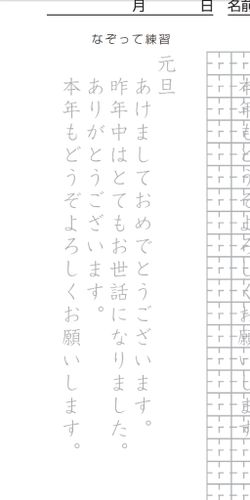 月 日 名前
なぞって練習
本年もどうぞよろしくお願いします
元旦
あけましておめでとうございます。
昨年中はとてもお世話になりました。
ありがとうございます。
本年もどうぞよろしくお願いします。